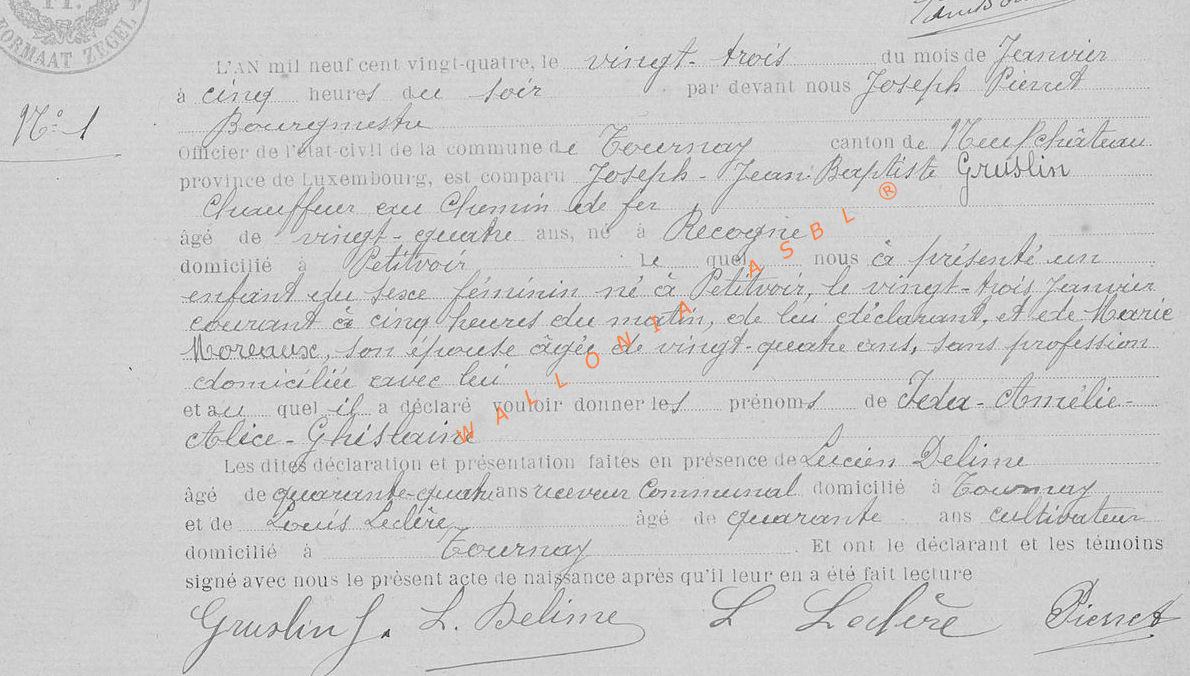 FORMAAT ZEGEL
L'AN mil neuf cent vingt-quatre, le vingt-trois du mois de Jeanvier
N° 1
à cinq heures du soir par devant nous Joseph Pierret
Bourgmestre
Officier de l'état-civil de la commune de Tournay canton de Neufchâteau
province de Luxembourg, est comparu Joseph-Jean-Baptiste Gruslin
Chauffeur au Chemin de fer
âgé de vingt-quatre ans, né à Recogne
domicilié à Petitvoir le quel nous à présenté un
enfant du sexe féminin né à Petitvoir, le vingt-trois Janvier
courant à cinq heures du matin, de lui déclarant, et de Marie
Moreaux, son épouse âgée de vingt-quatre ans, sans profession
domiciliée avec lui
et au quel il a déclaré vouloir donner les prénoms de Amélie-
Alice-Ghislaine
Les dites déclaration et présentation faites en présence de Lucien Delime
âgé de quarante-quatre ans receveur Communal domicilié à Tournay
et de Louis Leclère, âgé de quarante ans cultivateur
domicilié à Tournay. Et ont le déclarant et les témoins
signé avec nous le présent acte de naissance après qu'il leur en a été fait lecture
Gruslin J. L. Delime L Leclère Pierret
WALLONIA ASBL ®